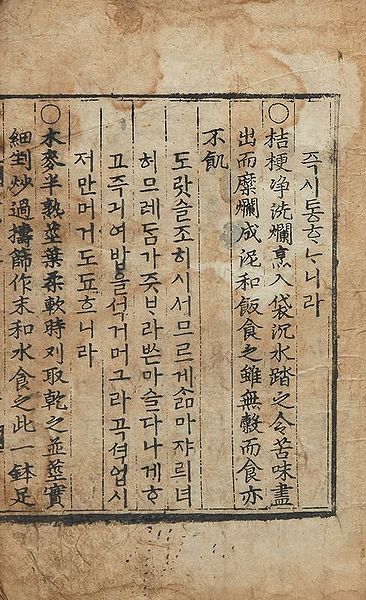 즉시통ᄒᆞᄂᆞ니라
○桔梗净洗爛烹入袋沉水踏之令苦味盡
出而糜爛成泥和飯食之雖無穀而食亦
不飢
도랏슬조히시서므르게솖마쟈릐녀
허므레ᄃᆞᆷ가즛ᄇᆞ라쓴마슬다나게ᄒᆞ
고즉거여밥을석거머그라곡셕업시
저만머거도됴흐니라
○木麥半熟莖葉柔軟時刈取乾之並莖實
細剉炒過擣篩作末和水食之此一鉢足